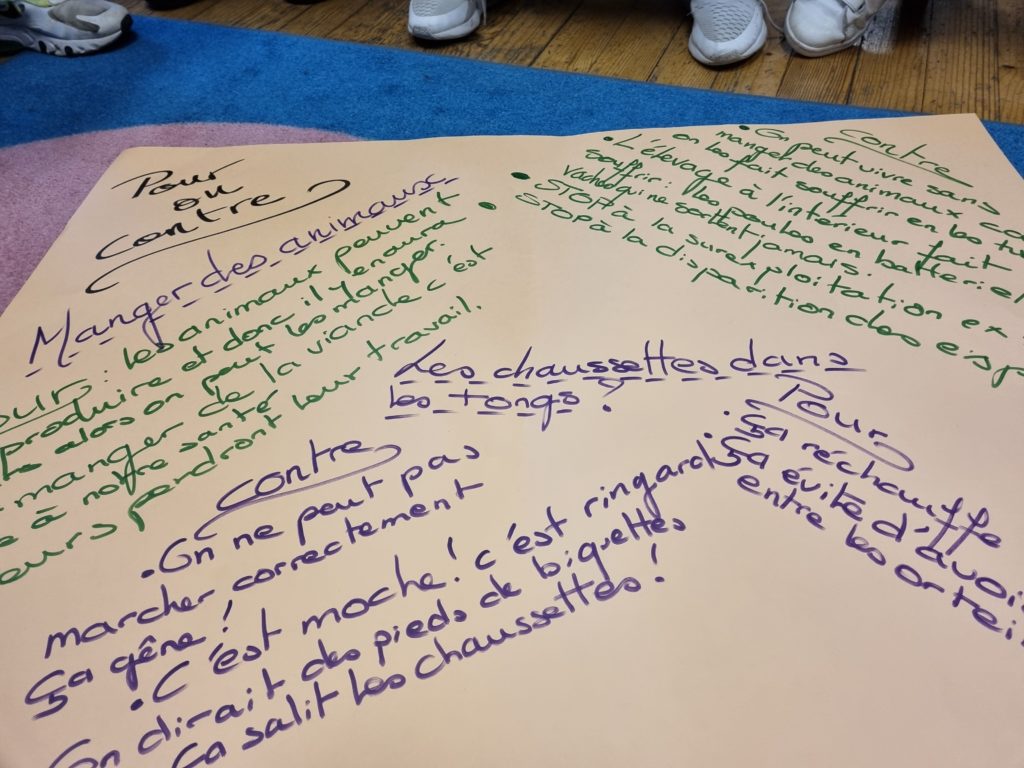 Pour
ou
contre
Manger des animaux
: Les animaux peuvent
produire et donc il y en aura
alors on peut les manger.
manger de la viande c'est
à notre santé
perdront leur travail.
Contre
On peut vivre sans
manger des animaux
on les fait souffrir en les
L'élevage à l'intérieur fait
souffrir : les poules en batterie
vaches qui ne sortent jamais.
STOP à la surexploitation
STOP à la disparition des
Les chaussettes dans
les tongs ?
Contre
. On ne peut pas
marcher correctement
ça gêne !
. C'est moche ! c'est ringard.
On dirait des pieds de biquettes
ça salit les chaussettes !
Pour
. ça réchauffe
. ça évite d'avoir
entre les